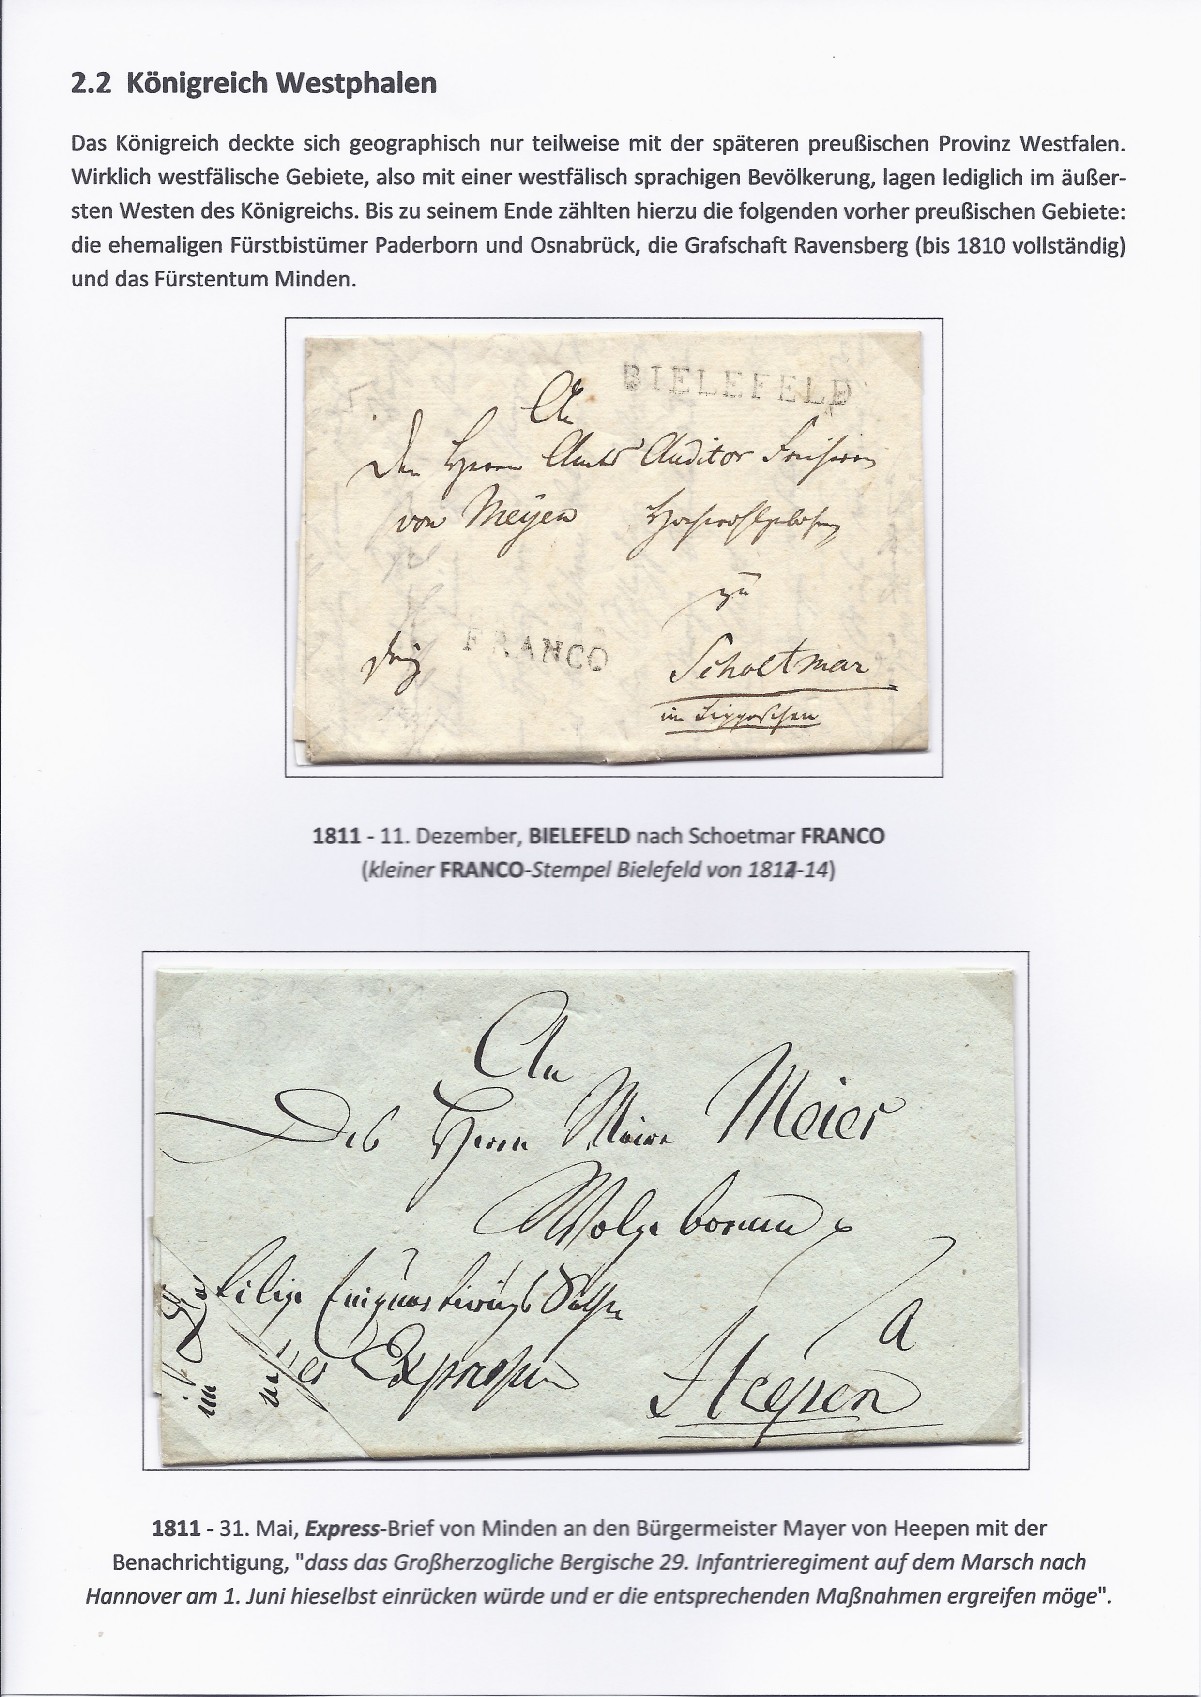 2.2 Königreich Westphalen
Das Königreich deckte sich geographisch nur teilweise mit der späteren preußischen Provinz Westfalen.
Wirklich westfälische Gebiete, also mit einer westfälisch sprachigen Bevölkerung, lagen lediglich im äußer-
sten Westen des Königreichs. Bis zu seinem Ende zählten hierzu die folgenden vorher preußischen Gebiete:
die ehemaligen Fürstbistümer Paderborn und Osnabrück, die Grafschaft Ravensberg (bis 1810 vollständig)
und das Fürstentum Minden.
BIELEFELD
An
Den Herrn Amts Auditor
von Meyen
zu
FRANCO
Schoetmar
im Lippeschen
1811 - 11. Dezember, BIELEFELD nach Schoetmar FRANCO
(kleiner FRANCO-Stempel Bielefeld von 1811-14)
An
Des Herrn Maire Meier
Wolgeboren
a
Heepen
1811 - 31. Mai, Express-Brief von Minden an den Bürgermeister Mayer von Heepen mit der
Benachrichtigung, "dass das Großherzogliche Bergische 29. Infantrieregiment auf dem Marsch nach
Hannover am 1. Juni hieselbst einrücken würde und er die entsprechenden Maßnahmen ergreifen möge".